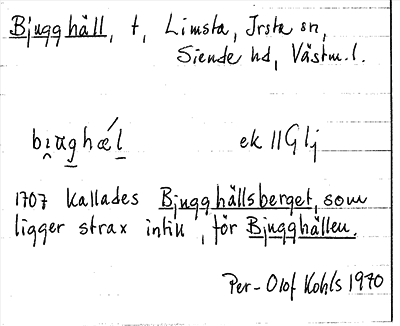 Bjugghäll, t, Limsta, Irsta sn,
Siende hd, Västm.l.
bi̯ug̲hæ´l̲ ek 11G lj
1707 kallades Bjugghällsberget, som
ligger strax intill, för Bjugghällen.
Per-Olof Kohls 1970